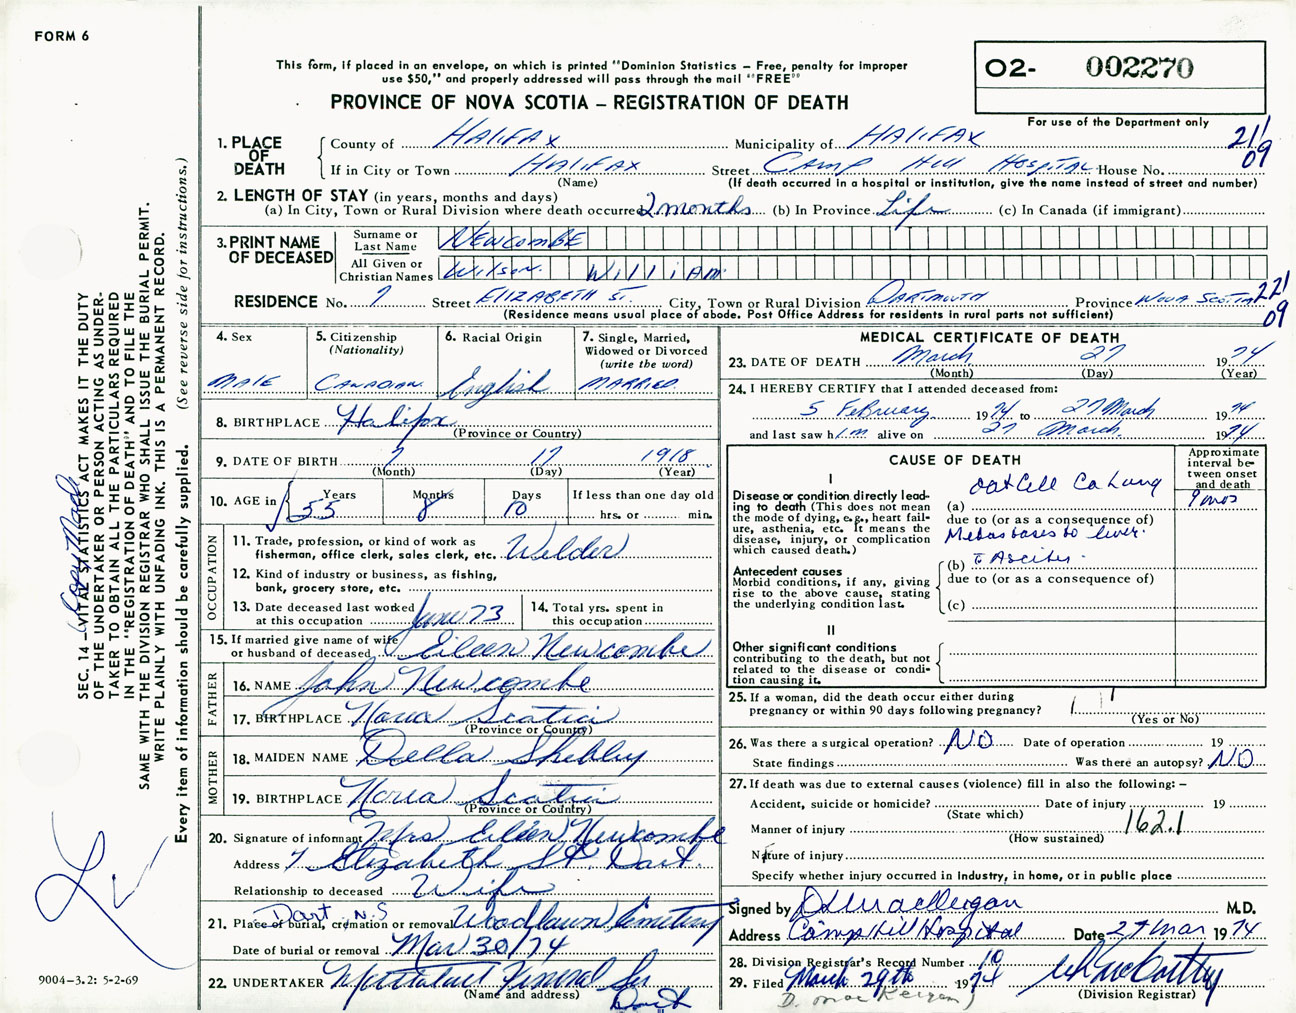 FORM 6
This form, if placed in an envelope, on which is printed "Dominion Statistics – Free, penalty for improper
use $50," and properly addressed will pass through the mail "FREE"
PROVINCE OF NOVA SCOTIA – REGISTRATION OF DEATH
02- 002270
For use of the Department only
211
09
1. PLACE OF DEATH
County of HALIFAX Municipality of HALIFAX
If in City or Town HALIFAX Street CAMP HILL HOSPITAL House No.
(Name) (If death occurred in a hospital or institution, give the name instead of street and number)
2. LENGTH OF STAY (in years, months and days)
(a) In City, Town or Rural Division where death occurred 2 months (b) In Province Life (c) In Canada (if immigrant)
3. PRINT NAME OF DECEASED
Surname or Last Name NEWCOMBE
All Given or Christian Names Wilson William
RESIDENCE No. 7 Street ELIZABETH ST. City, Town or Rural Division DARTMOUTH Province NOVA SCOTIA
221
09
(Residence means usual place of abode. Post Office Address for residents in rural parts not sufficient)
4. Sex
MALE
5. Citizenship
(Nationality)
CANADIAN
6. Racial Origin
English
7. Single, Married,
Widowed or Divorced
(write the word)
MARRIED
8. BIRTHPLACE Halifax
(Province or Country)
9. DATE OF BIRTH 7 17 1918
(Month) (Day) (Year)
10. AGE in Years Months Days If less than one day old
55 8 10 hrs. or min.
OCCUPATION
11. Trade, profession, or kind of work as
fisherman, office clerk, sales clerk, etc. Welder
12. Kind of industry or business, as fishing,
bank, grocery store, etc.
13. Date deceased last worked
at this occupation June 73
14. Total yrs. spent in
this occupation
15. If married give name of wife
or husband of deceased Eileen Newcombe
FATHER
16. NAME John Newcombe
17. BIRTHPLACE Nova Scotia
(Province or Country)
MOTHER
18. MAIDEN NAME Della
19. BIRTHPLACE Nova Scotia
(Province or Country)
20. Signature of informant Mrs Eileen Newcombe
Address 7 Elizabeth St. Dart
Relationship to deceased Wife
Dart N.S
21. Place of burial, cremation or removal Woodlawn Cemetery
Date of burial or removal Mar 30/74
22. UNDERTAKER Funeral
(Name and address)
Dart
MEDICAL CERTIFICATE OF DEATH
23. DATE OF DEATH March 27 1974
(Month) (Day) (Year)
24. I HEREBY CERTIFY that I attended deceased from:
5 February 1974 to 27 March 1974
and last saw him alive on 27 March 1974
CAUSE OF DEATH
Approximate
interval be-
tween onset
and death
I
Disease or condition directly lead-
ing to death (This does not mean
the mode of dying, e.g., heart fail-
ure, asthenia, etc. It means the
disease, injury, or complication
which caused death.)
(a) Oat Cell Ca Lung 9 mos
due to (or as a consequence of)
Metastases to liver
Antecedent causes
Morbid conditions, if any, giving
rise to the above cause, stating
the underlying condition last.
(b) c Ascites
due to (or as a consequence of)
(c)
II
Other significant conditions
contributing to the death, but not
related to the disease or condi-
tion causing it.
25. If a woman, did the death occur either during
pregnancy or within 90 days following pregnancy?
(Yes or No)
26. Was there a surgical operation? NO Date of operation 19
State findings Was there an autopsy? NO
27. If death was due to external causes (violence) fill in also the following: –
Accident, suicide or homicide? Date of injury 19
(State which)
Manner of injury 162.1
(How sustained)
Nature of injury
Specify whether injury occurred in industry, in home, or in public place
Signed by M.D.
Address Camp Hill Hospital Date 27 Mar 1974
28. Division Registrar's Record Number 10
29. Filed March 29th 1974
(Division Registrar)
D. Mac Keigan
SEC. 14 – VITAL STATISTICS ACT MAKES IT THE DUTY
OF THE UNDERTAKER OR PERSON ACTING AS UNDER-
TAKER TO OBTAIN ALL THE PARTICULARS REQUIRED
IN THE "REGISTRATION OF DEATH" AND TO FILE THE
SAME WITH THE DIVISION REGISTRAR WHO SHALL ISSUE THE BURIAL PERMIT.
WRITE PLAINLY WITH UNFADING INK. THIS IS A PERMANENT RECORD.
Every item of information should be carefully supplied. (See reverse side for instructions.)
Copy Made
9004–3.2: 5-2-69